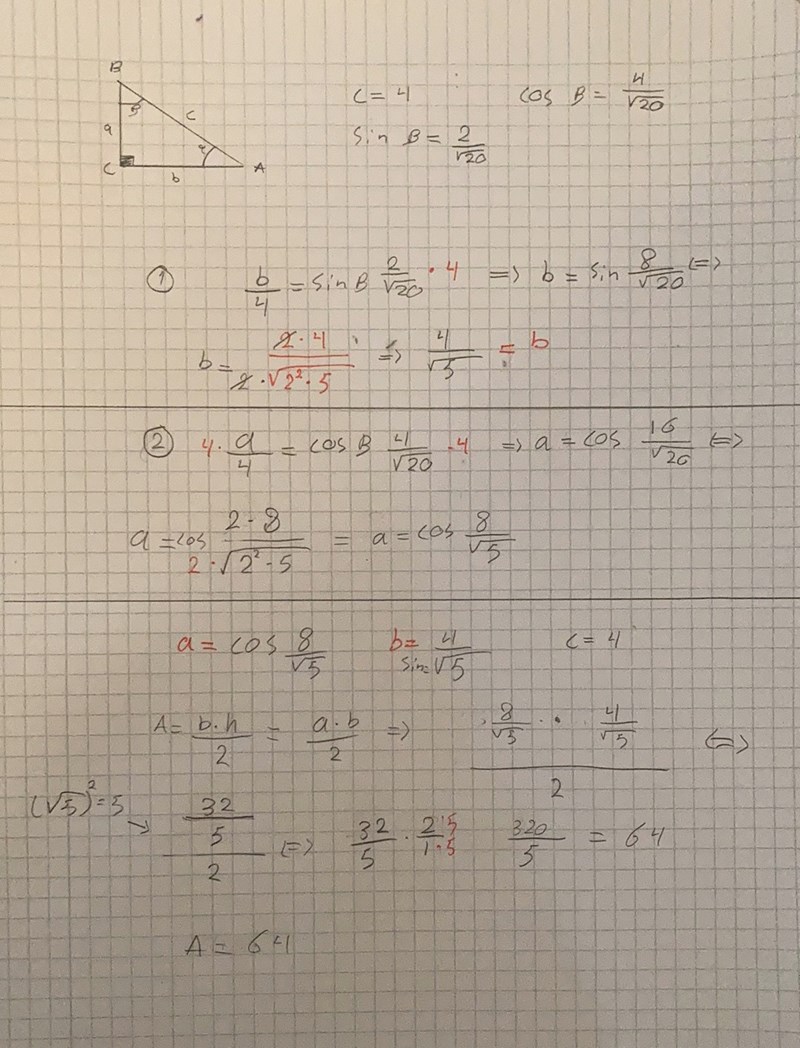 B
β
a
c
C
b
α
A
c = 4
cos B = 4/√20
sin B = 2/√20
① b/4 = sin B 2/√20 · 4 => b = sin 8/√20 <=>
b = 2·4/2·√2²·5 => 4/√5 = b
② 4· a/4 = cos B 4/√20 ·4 => a = cos 16/√20 <=>
a = cos 2·8/2·√2²·5 = a = cos 8/√5
a = cos 8/√5 b = 4/sin=√5 c = 4
A = b·h/2 = a·b/2 => 8/√5 · 4/√5 / 2 <=>
(√5)² = 5 → 32/5/2 <=> 32/5 · 2·5/1·5 320/5 = 64
A = 64